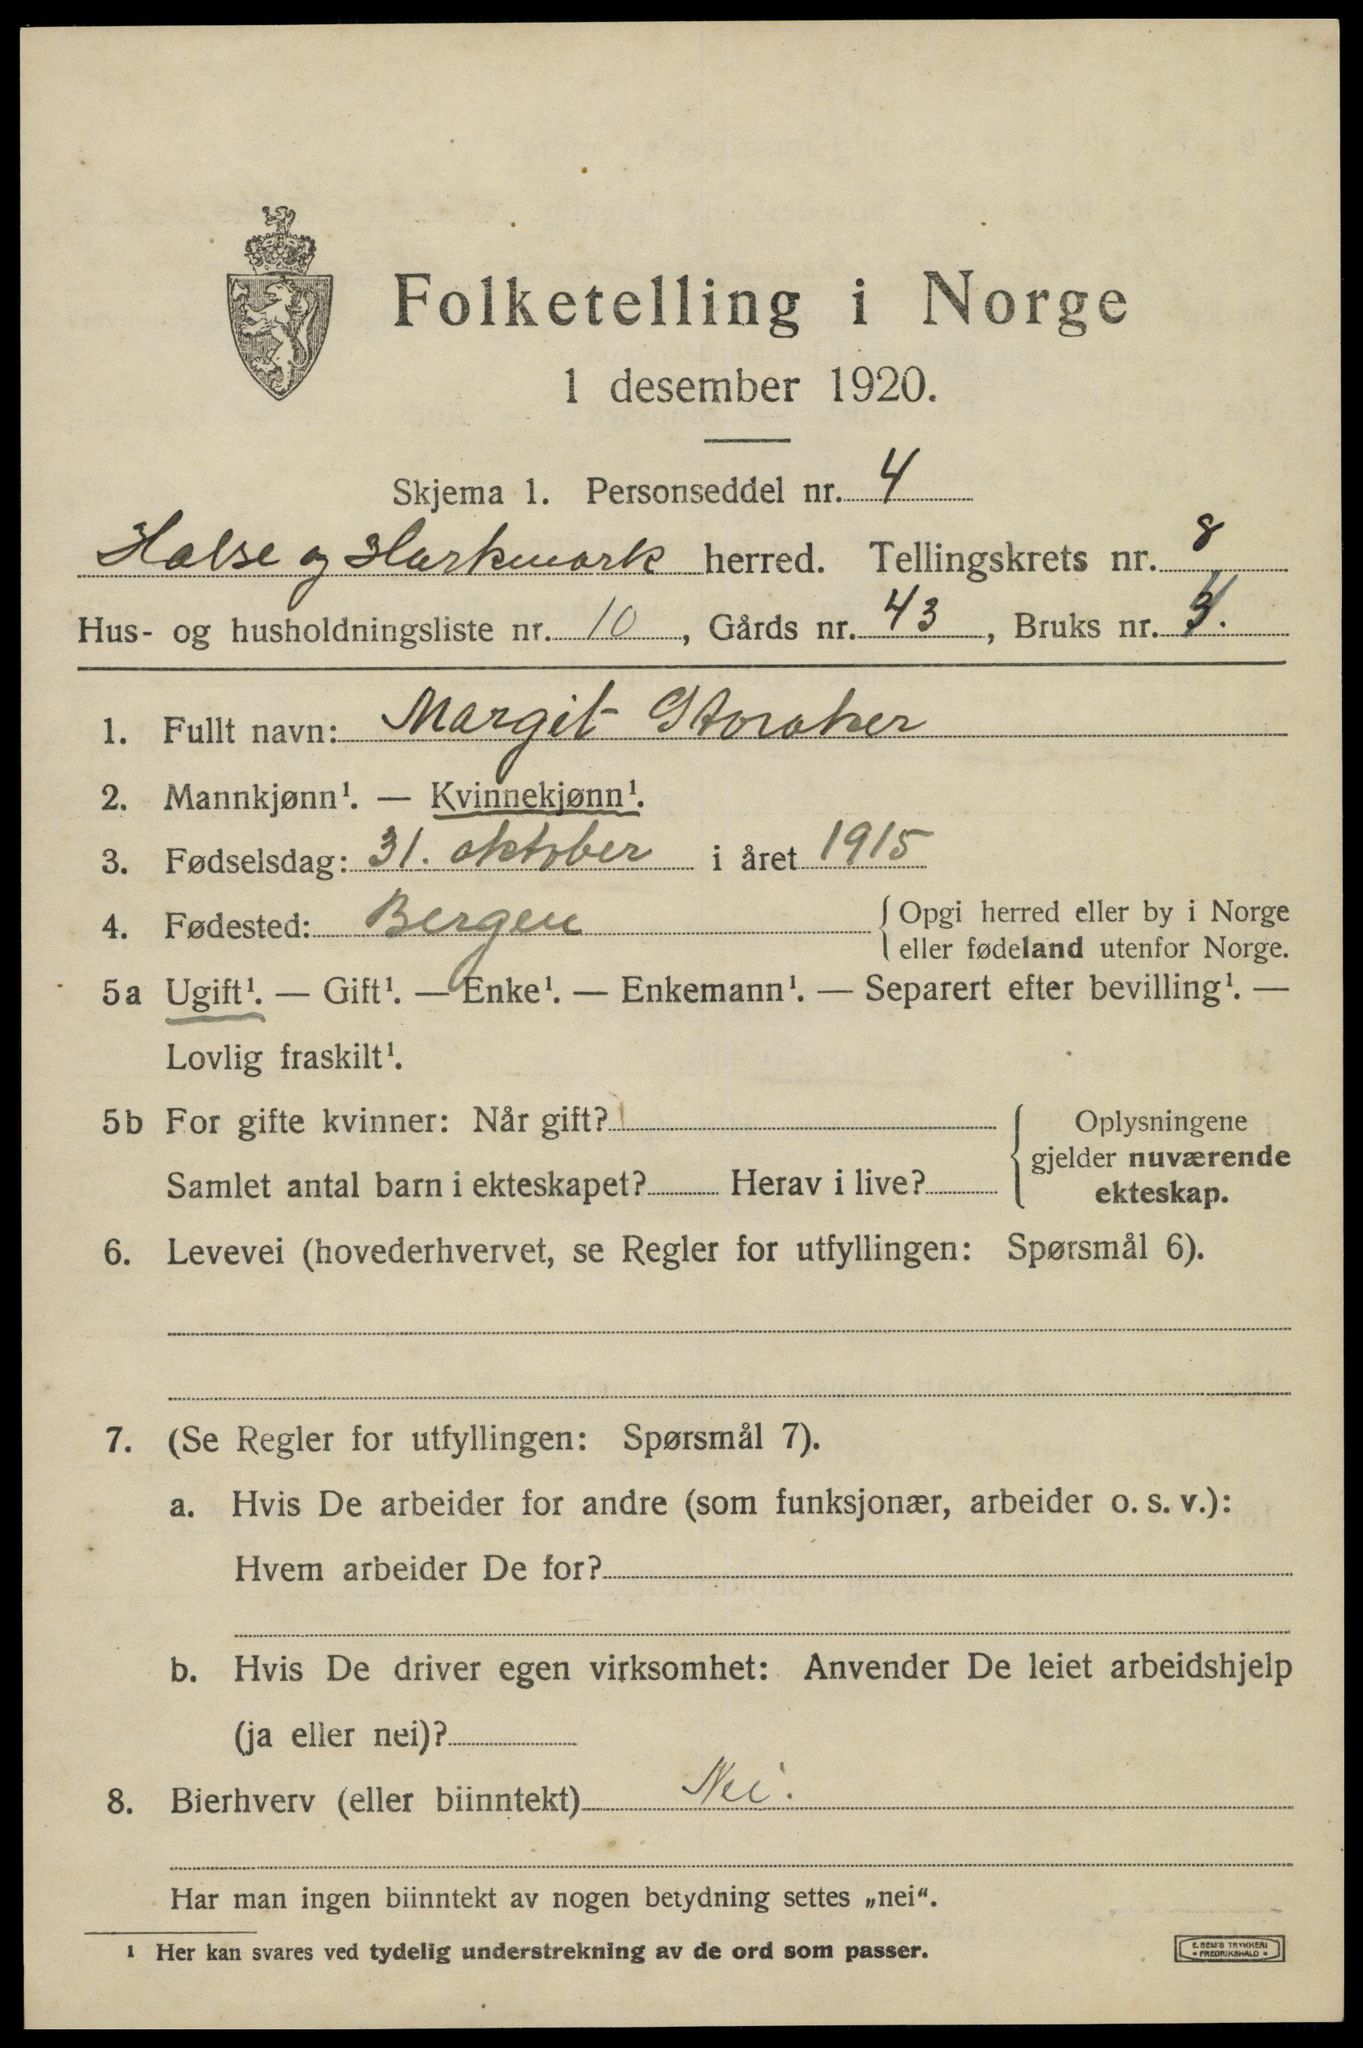 Folketelling i Norge
1 desember 1920.
Skjema 1. Personseddel nr. 4
Halse og Harkmark herred. Tellingskrets nr. 8
Hus- og husholdningsliste nr. 10, Gårds nr. 43, Bruks nr.
1. Fullt navn: Margit Storaker
2. Mannkjønn¹. — Kvinnekjønn¹.
3. Fødselsdag: 31. oktober i året 1915
4. Fødested: Bergen {Opgi herred eller by i Norge
eller fødeland utenfor Norge.
5a Ugift¹. — Gift¹. — Enke¹. — Enkemann¹. — Separert efter bevilling¹. —
Lovlig fraskilt¹.
5b For gifte kvinner: Når gift?
Samlet antal barn i ekteskapet? Herav i live?
{Oplysningene
gjelder nuværende
ekteskap.
6. Levevei (hovederhvervet, se Regler for utfyllingen: Spørsmål 6).
7. (Se Regler for utfyllingen: Spørsmål 7).
a. Hvis De arbeider for andre (som funksjonær, arbeider o. s. v.):
Hvem arbeider De for?
b. Hvis De driver egen virksomhet: Anvender De leiet arbeidshjelp
(ja eller nei)?
8. Bierhverv (eller biinntekt) Nei.
Har man ingen biinntekt av nogen betydning settes „nei“.
¹ Her kan svares ved tydelig understrekning av de ord som passer.
E. SEM'S TRYKKERI
FREDRIKSHALD